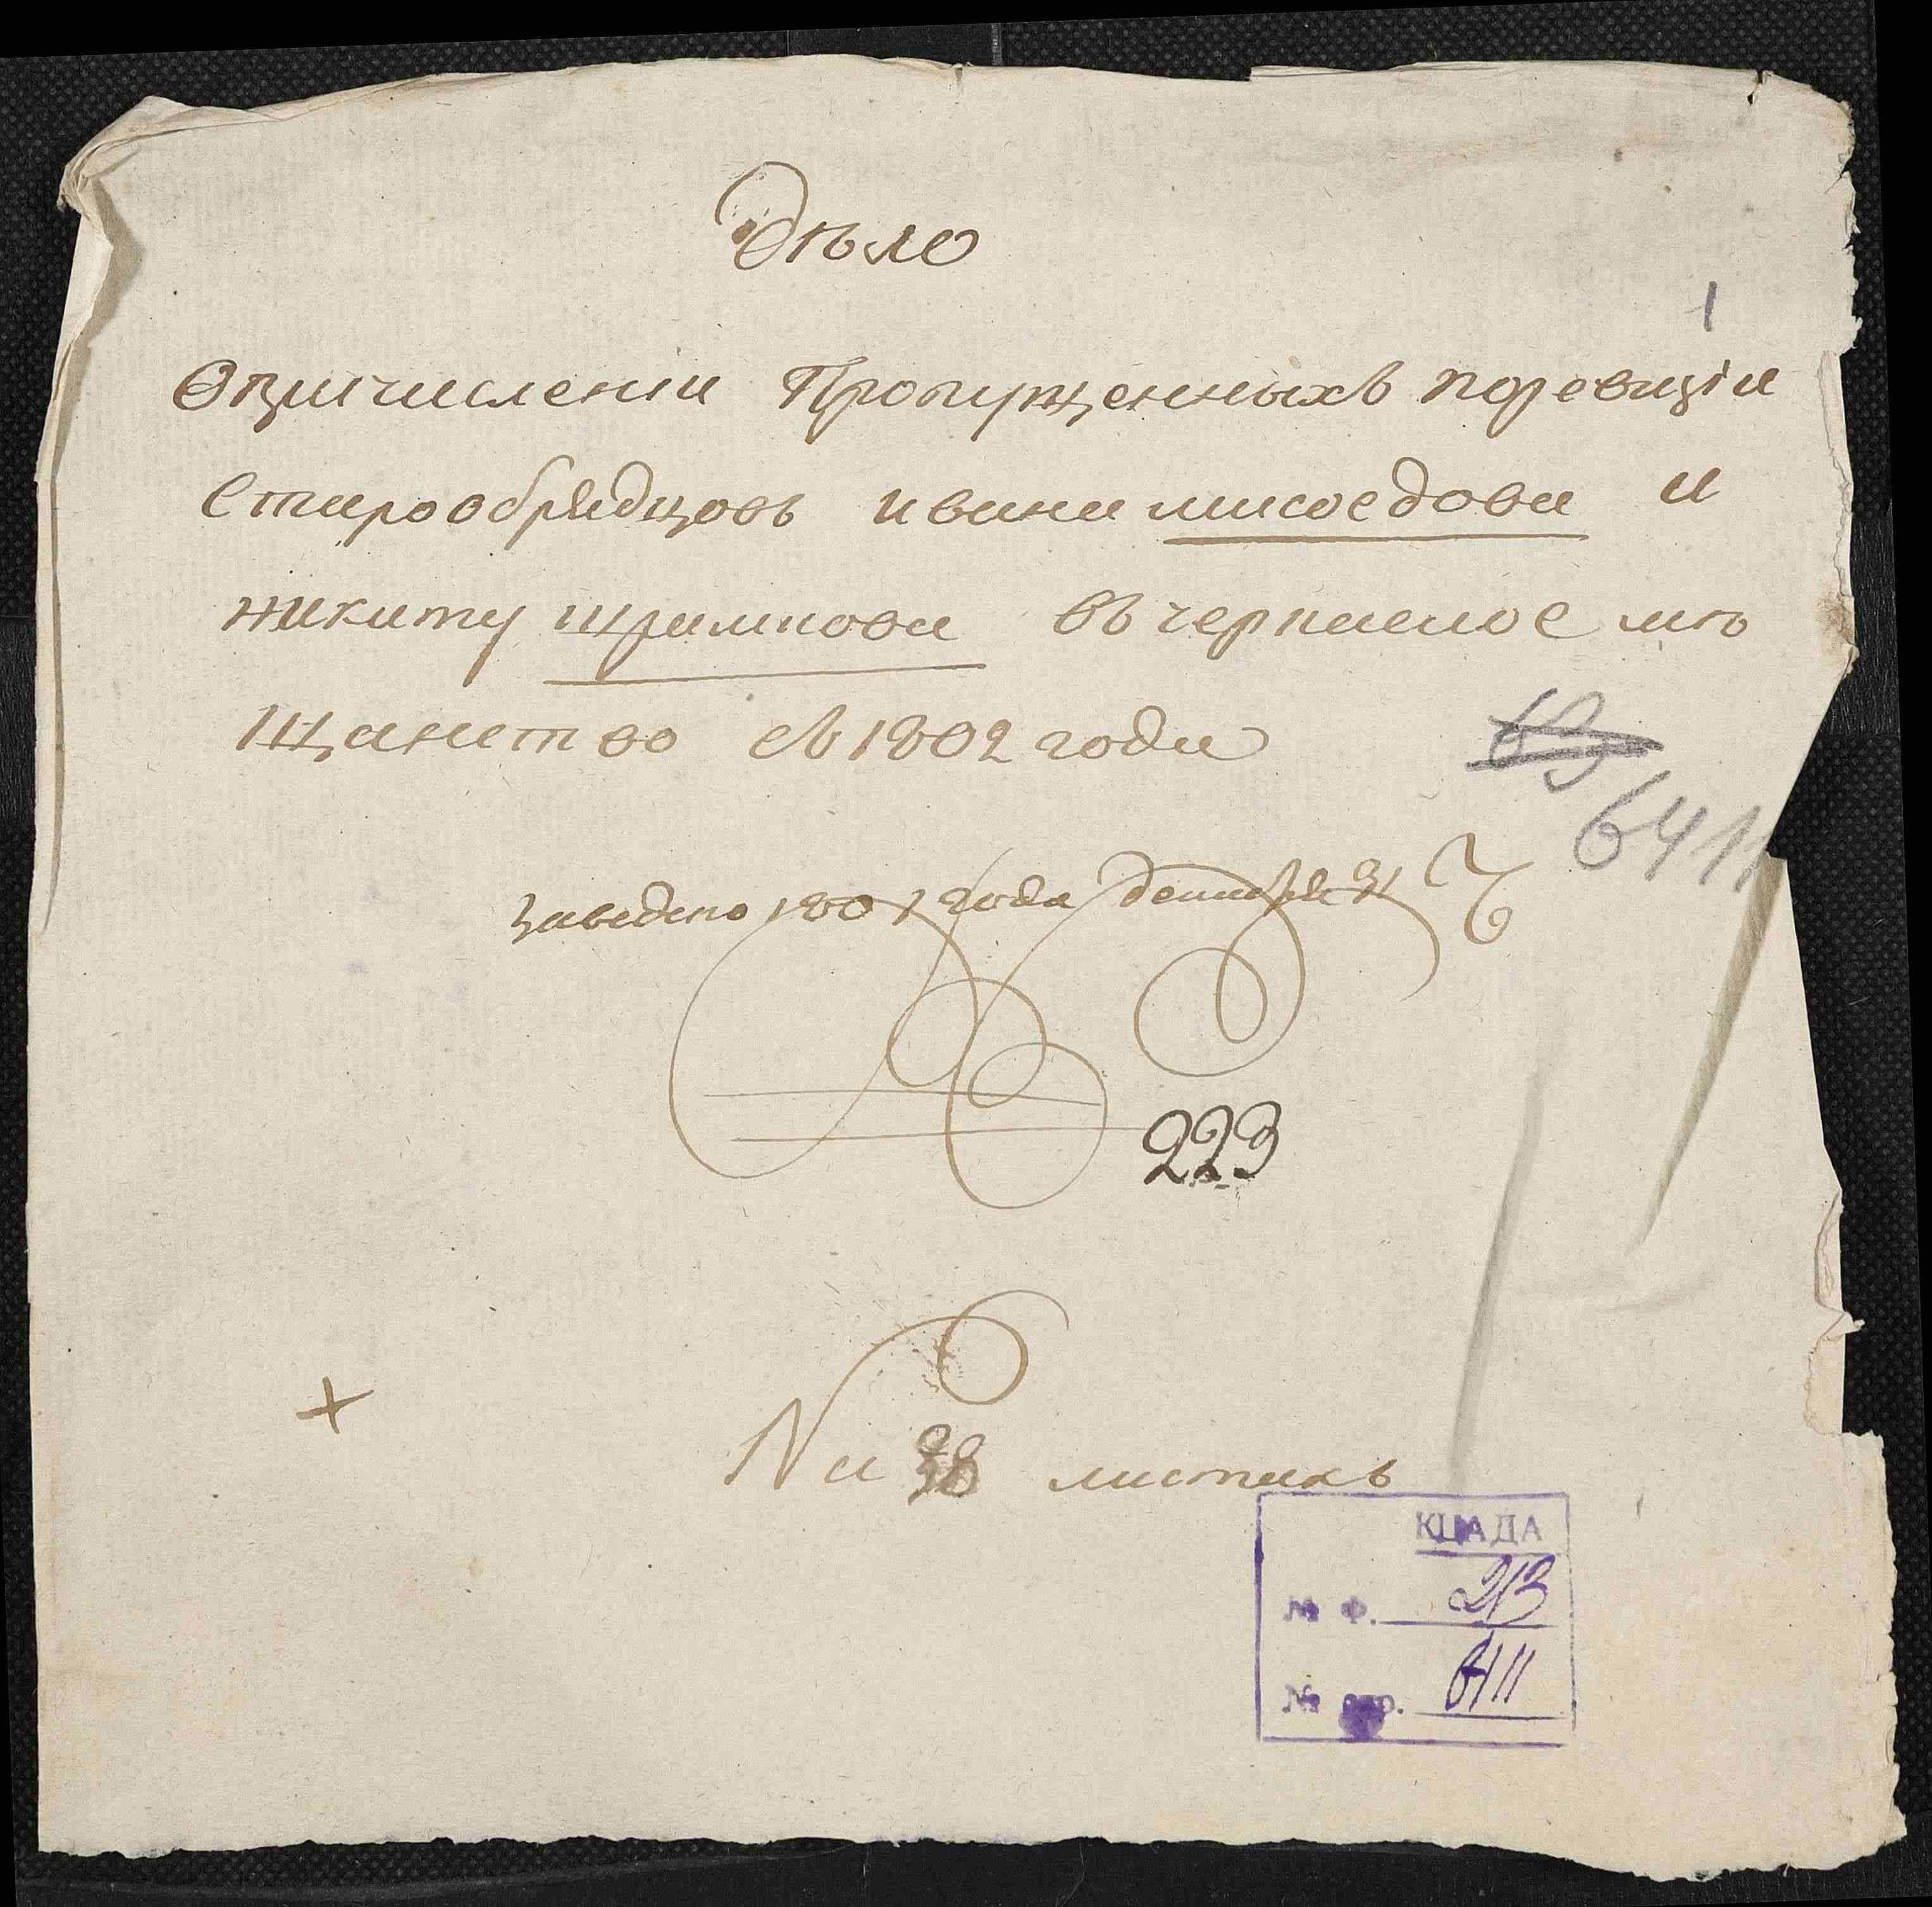 Дѣло
1
Опричисленіи Пропущенныхъ поревизіи
Старообрядцовъ ивана мясоедова и
никиту шрамкова въ черкаское мѣ
щанство съ 1802 года
6411
заведено 1801 года декабря 31 Ч
223
+
На 38 листахъ
КЦАДА
№ Ф. 213
№ 6411